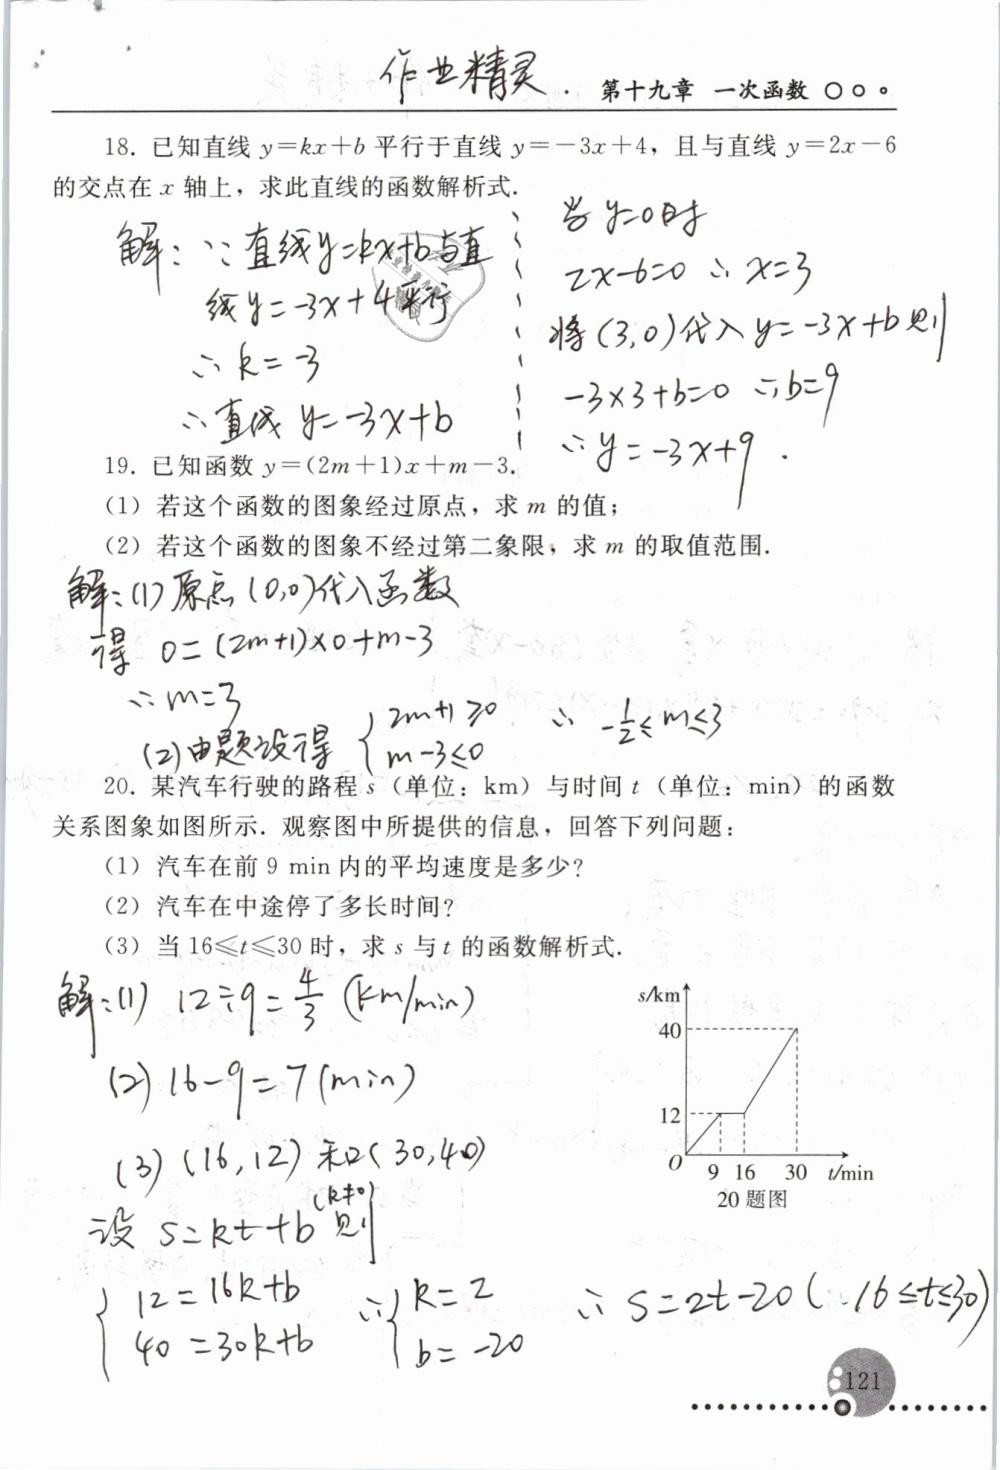 作业精灵.
第十九章 一次函数
18. 已知直线 y=kx+b 平行于直线 y=-3x+4，且与直线 y=2x-6
的交点在 x 轴上，求此直线的函数解析式.
解：∵直线y=kx+b与直
线y=-3x+4平行
∴k=-3
∴直线 y=-3x+b
当y=0时
2x-6=0 ∴x=3
将(3,0)代入 y=-3x+b 则
-3×3+b=0 ∴b=9
∴y=-3x+9.
19. 已知函数 y=(2m+1)x+m-3.
(1) 若这个函数的图象经过原点，求 m 的值；
(2) 若这个函数的图象不经过第二象限，求 m 的取值范围.
解：(1)原点(0,0)代入函数
得 0=(2m+1)×0+m-3
∴m=3
(2)由题设得 { 2m+1≥0 m-3≤0 ∴ -1/2≤m≤3
20. 某汽车行驶的路程 s（单位：km）与时间 t（单位：min）的函数
关系图象如图所示. 观察图中所提供的信息，回答下列问题：
(1) 汽车在前 9 min 内的平均速度是多少？
(2) 汽车在中途停了多长时间？
(3) 当 16≤t≤30 时，求 s 与 t 的函数解析式.
解：(1) 12÷9=4/3 (km/min)
(2) 16-9=7(min)
(3) (16,12)和(30,40)
设 s=kt+b (k≠0) 则
{ 12=16k+b
40=30k+b
∴{ k=2
b=-20
∴ s=2t-20 (16≤t≤30)
s/km
40
12
O
9 16 30 t/min
20 题图
121